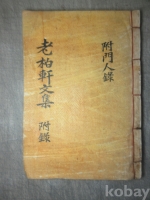 附門人錄
老柏軒文集 附錄
kobay